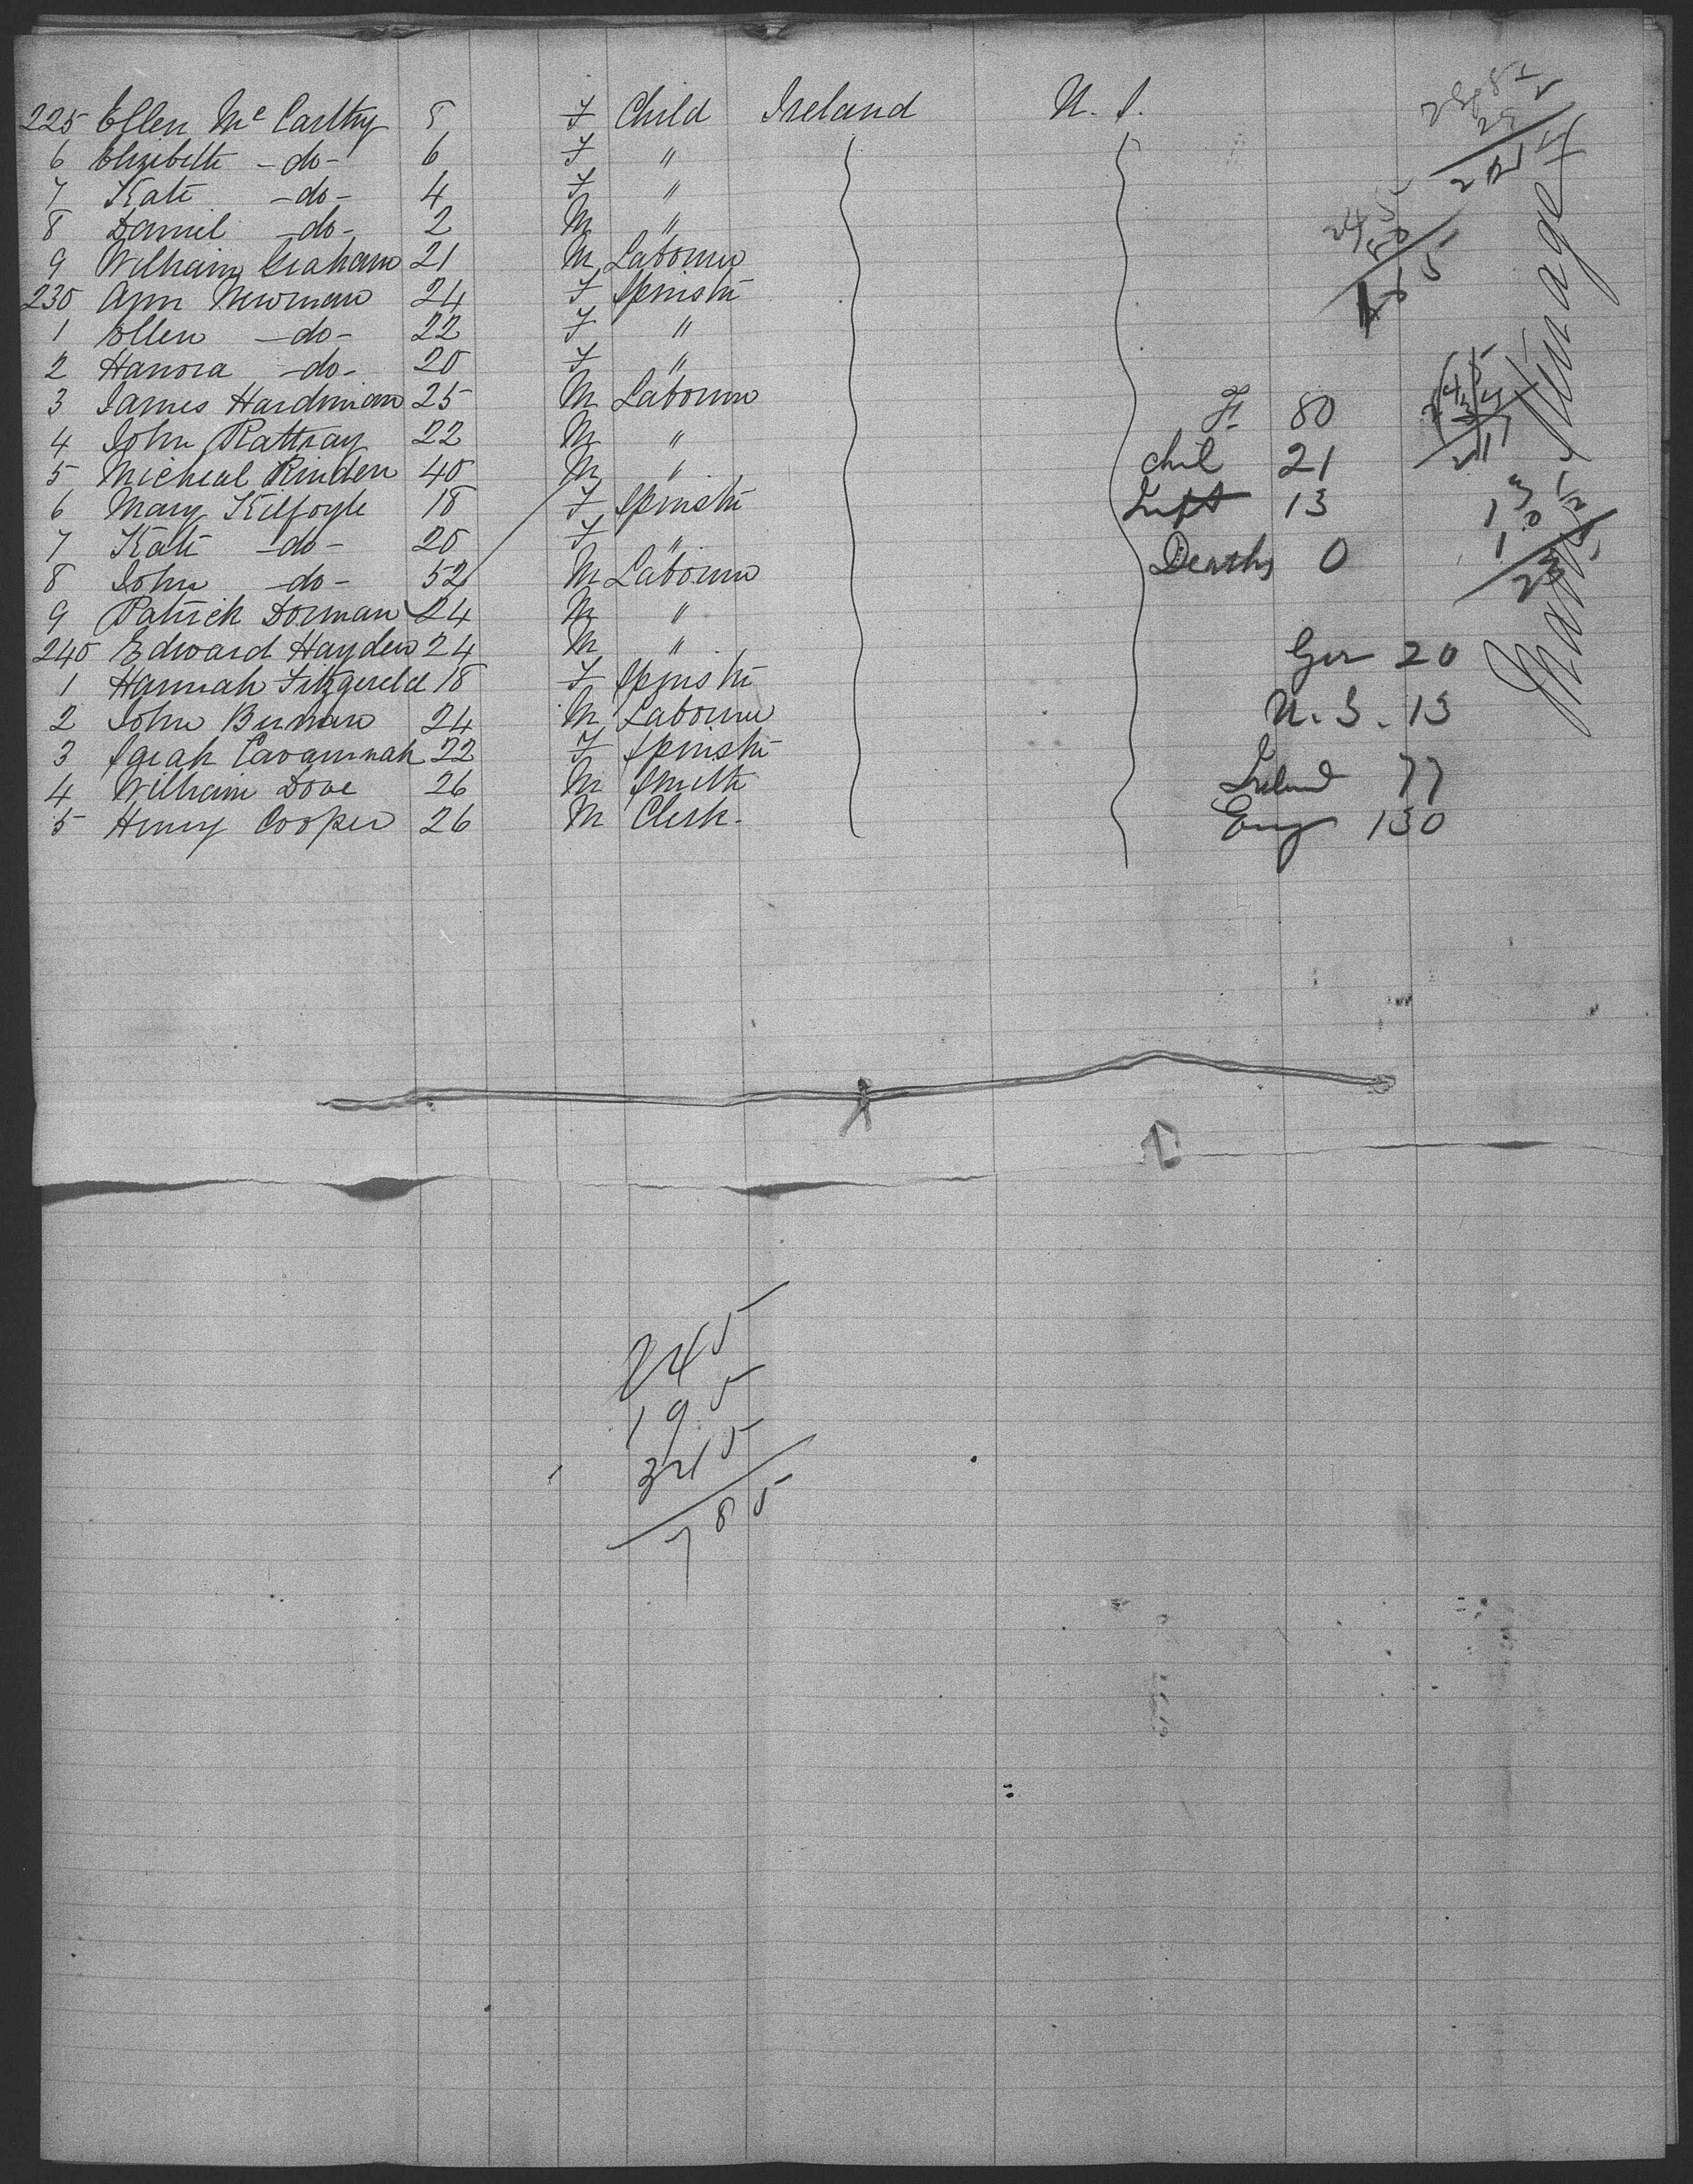 225 Ellen McCarthy 8 F Child Ireland U. S.
6 Elizibeth -do- 6 F "
7 Kate -do- 4 F "
8 Daniel -do- 2 M "
9 William Graham 21 M Labourer
230 Ann Newman 24 F Spinster
1 Ellen -do- 22 F "
2 Hanora -do- 20 F "
3 James Hardiman 25 M Labourer
4 John Rattray 22 M "
5 Micheal Rinden 40 M "
6 Mary Kilfoyle 18 F Spinster
7 Kate -do- 20 F "
8 John -do- 52 M Labourer
9 Patrick Dorman 24 M "
240 Edward Hayden 24 M "
1 Hannah Fitzgerald 18 F Spinster
2 John 24 M Labourer
3 Cavannah 22 F Spinster
4 William Dove 26 M Smith
5 Henry Cooper 26 M Clerk.
F 80
chil 21
13
Deaths 0
Ger 20
U. S. 13
Ireland 77
Eng 130
245
195
345
785